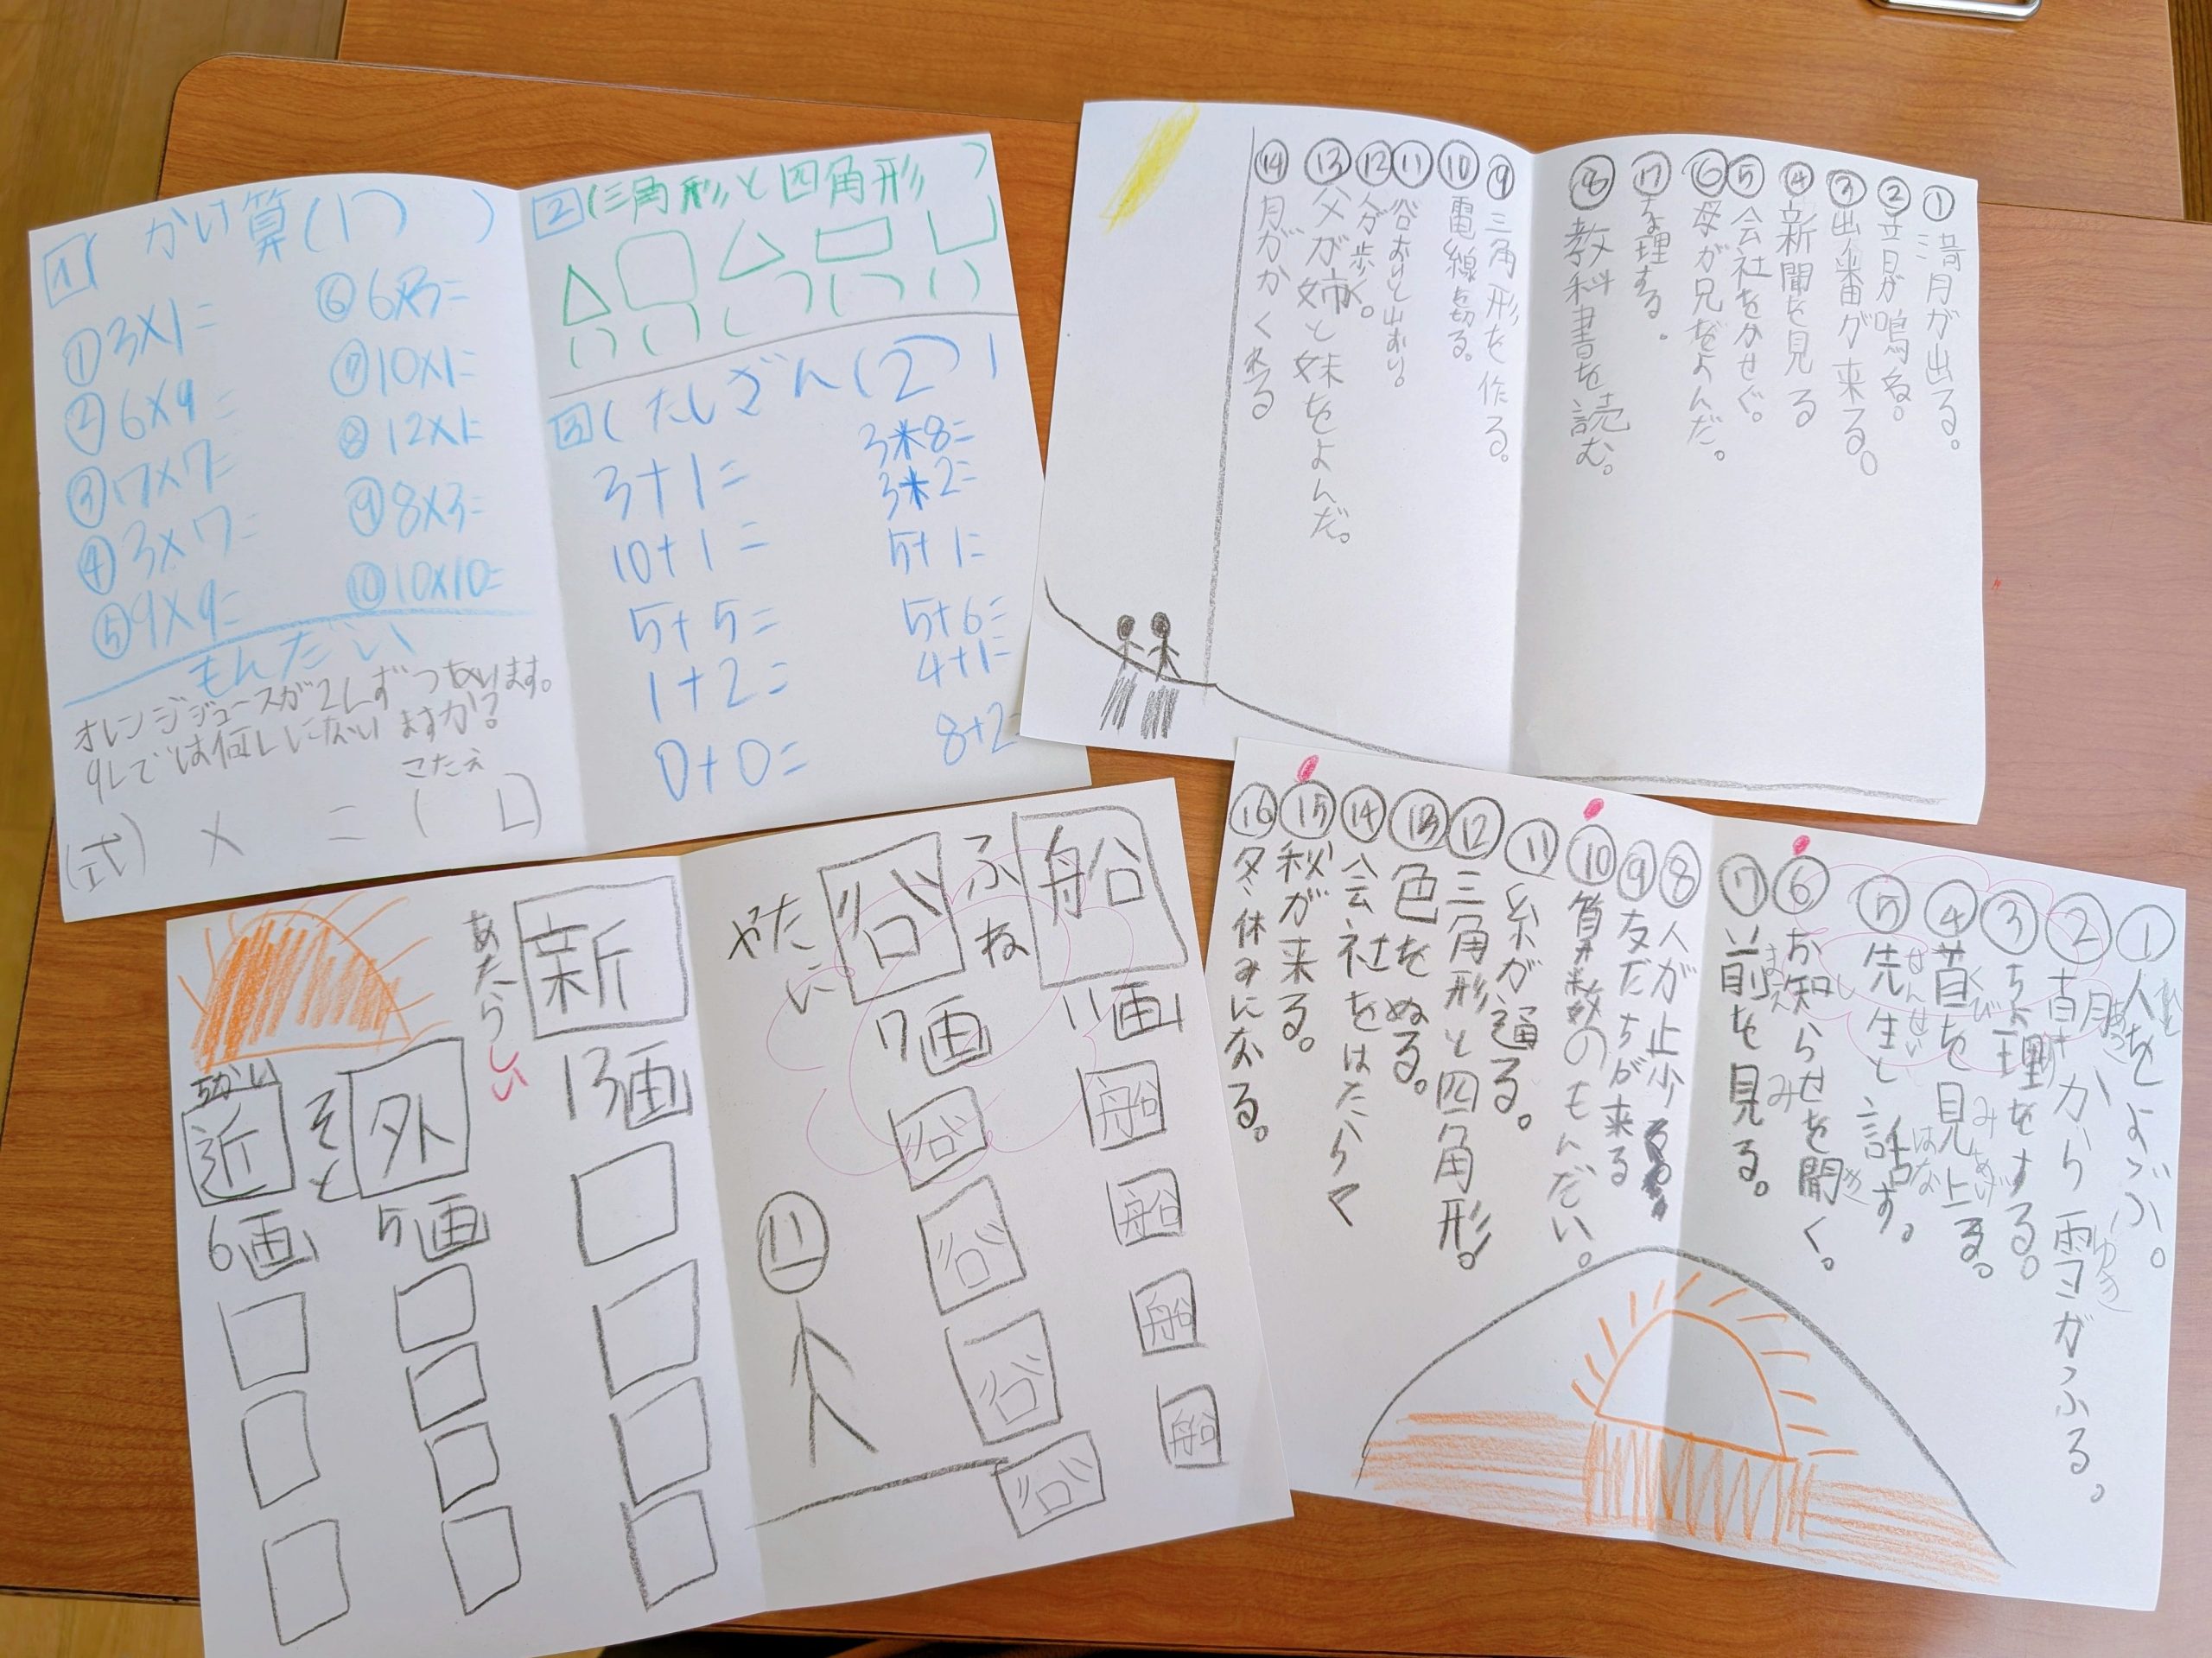 1 かけ算(1つ)
①3×1=
②6×9=
③7×7=
④3×7=
⑤9×9=
⑥6×3=
⑦10×1=
⑧12×1=
⑨8×3=
⑩10×10=
もんだい
オレンジジュースが2Lずつあります。
9Lでは何Lにないますか?
こたえ
(式) × = ( L)
2(三角形と四角形 )
( ) ( ) ( ) ( ) ( )
3(たしざん(2つ)
3+1=
10+1=
5+5=
1+2=
0+0=
3*8=
3*2=
5+1=
5+6=
4+1=
8+2=
① 月が出る。
② 音が鳴る。
③ 出番が来る。
④ 新聞を見る
⑤ 会社をかせぐ。
⑥ 母が兄をよんだ。
⑦ 理する。
⑧ 教科書を読む。
⑨ 三角形を作る。
⑩ 電線を切る。
⑪ 谷おりと山おり。
⑫ 人が歩く。
⑬ 父が姉と妹をよんだ。
⑭ 月がかくれる
船 ふね
11画
船
船
船
船
谷 やたに
7画
谷
谷
谷
谷
新 あたらしい
13画
外 そと
5画
近 ちかい
6画
① 人をよぶ。
ひと
② 青月から雪がふる。
ゆき
③ 理をする。
④ 首を見上る。
くび みあげ
⑤ 先生と話す。
せんせい はな
⑥ お知らせを聞く。
し き
⑦ 前を見る。
まえ み
⑧ 人が止少る
⑨ 友だちが来る
⑩ 算数のもんだい。
⑪ 糸が通る。
⑫ 三角形と四角形。
⑬ 色をぬる。
⑭ 会社をはたらく
⑮ 秋が来る。
⑯ 冬休みになる。